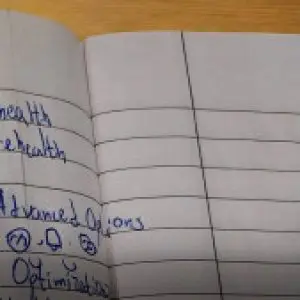 health
ehealth
Advanced Opions
Optimization